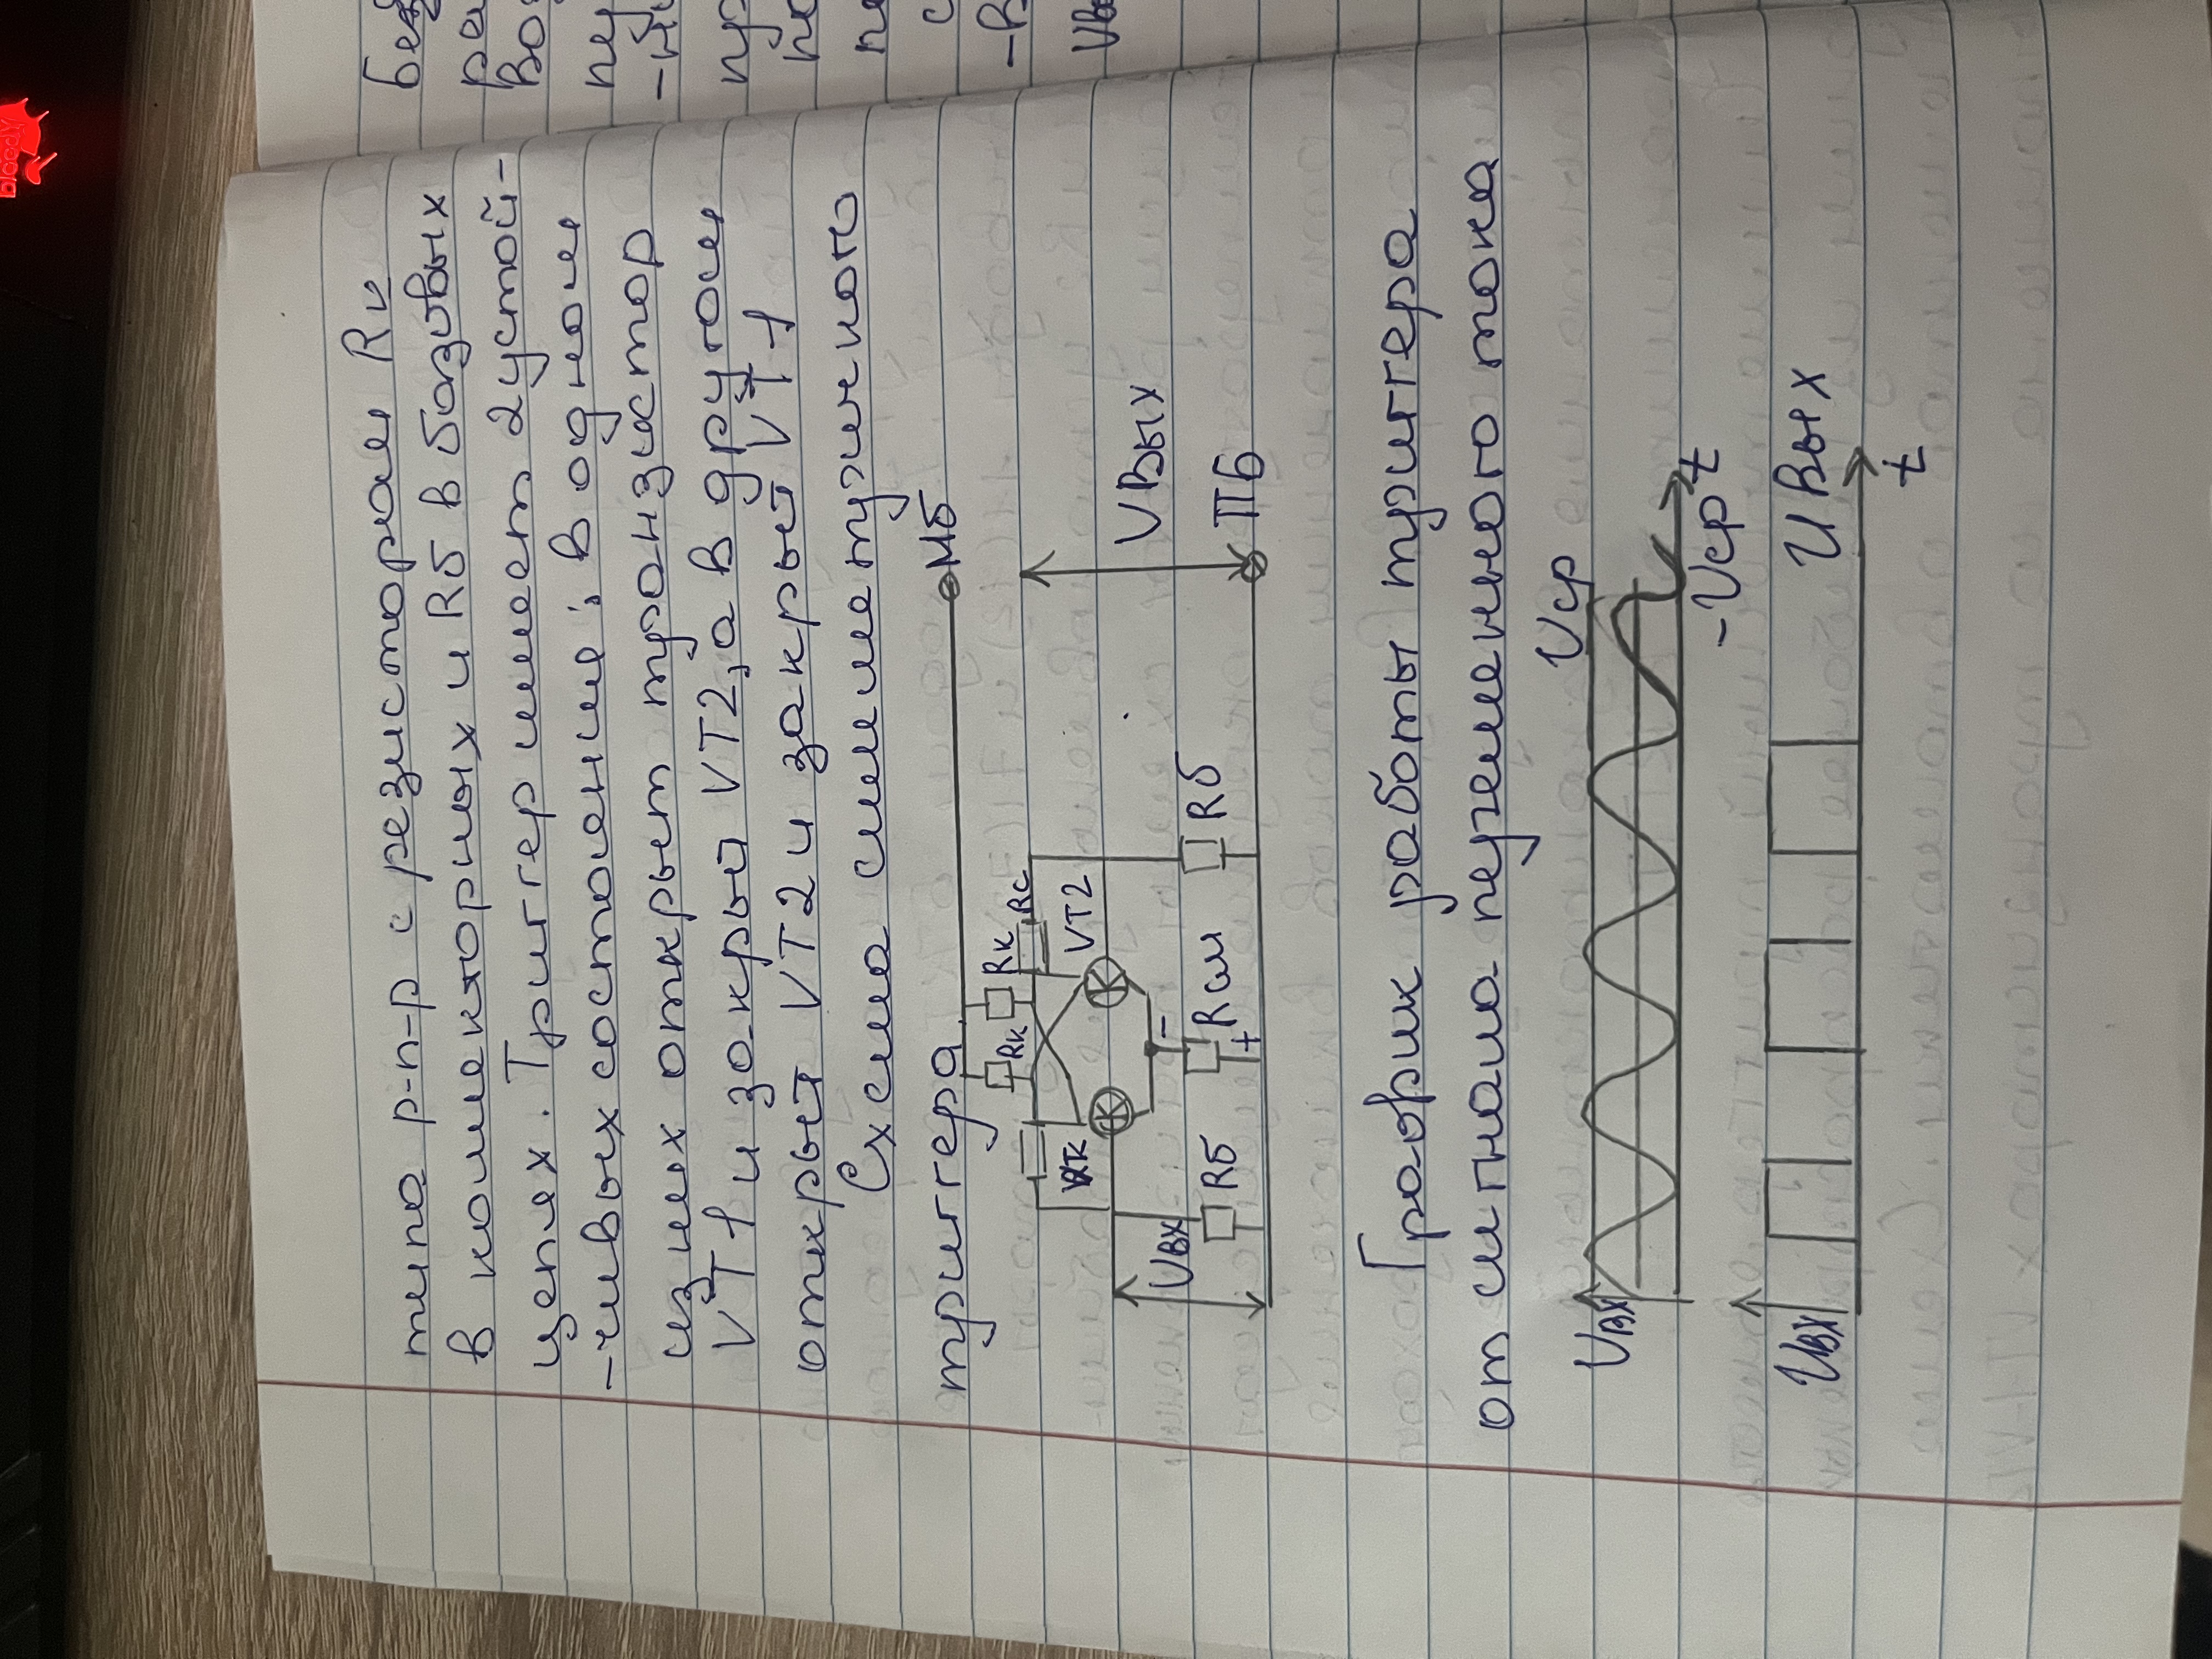 типа p-n-p с резисторам Rк
в коллекторных и Rб в базовых
цепях. Тригер имеет 2 устой-
-чивых состояние; в одном
из них открыт транзистор
VT1 и закрый VT2, а в другом
открыт VT2 и закрый VT1
Схема симметричного
тригера
МБ
Rк
Rк
Rс
VT2
Uвх
Rб
Rсм
-
+
Rб
Uвых
ПБ
График работы тригера
от сигнала переменного тока
Uвх
Uср
-Uср
t
Uвх
Uвых
t
bloody